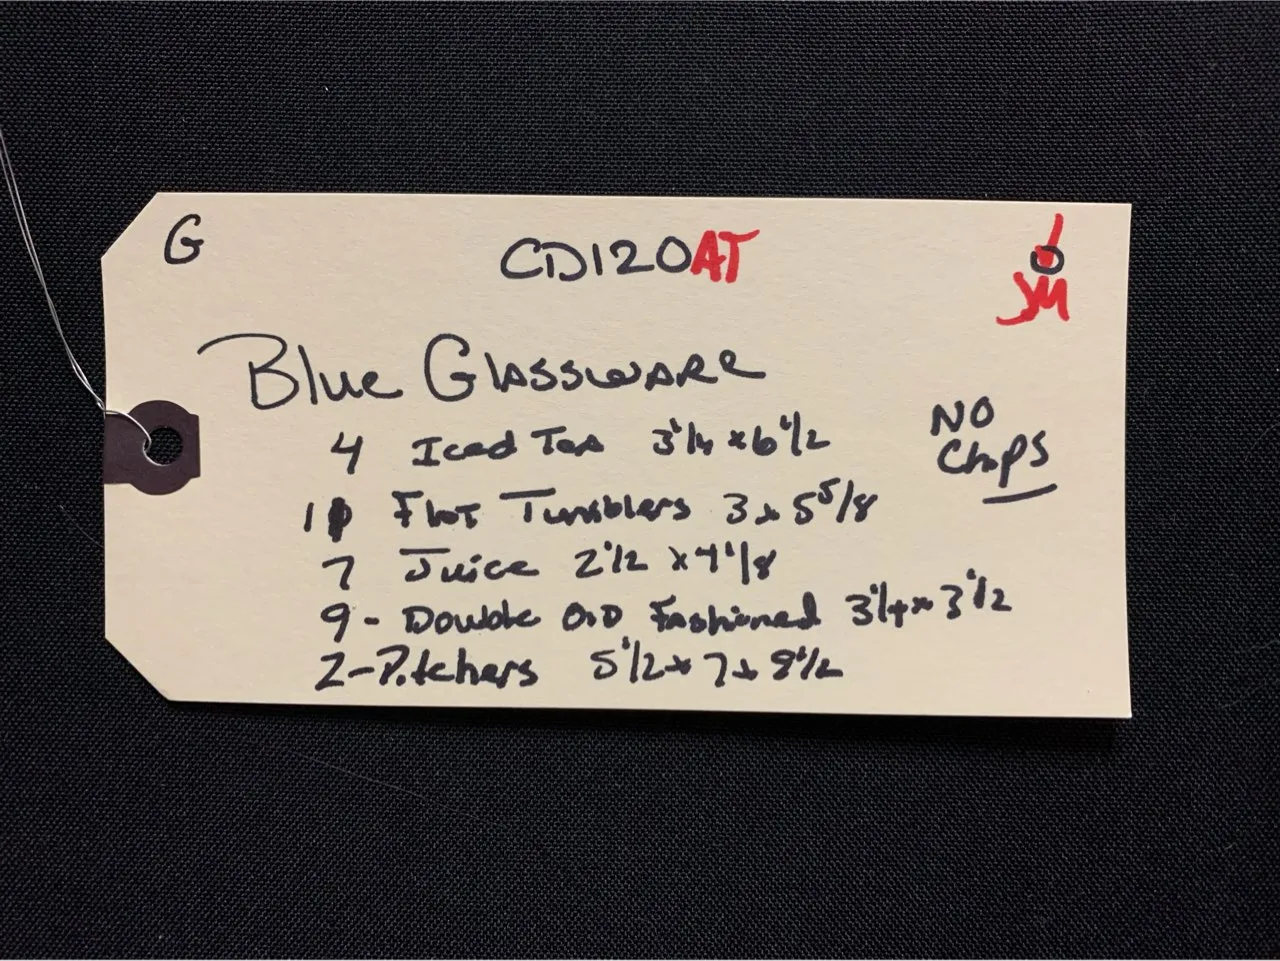 G CD120AT O
JM
Blue Glassware
NO
Chips
4 Iced Tea 3 1/4 x 6 1/2
Flat Tumblers 3 x 5 5/8
7 Juice 2 1/2 x 4 1/8
9 - Double Old Fashioned 3 1/4 x 3 1/2
2 - Pitchers 5 1/2 x 7 x 8 1/2